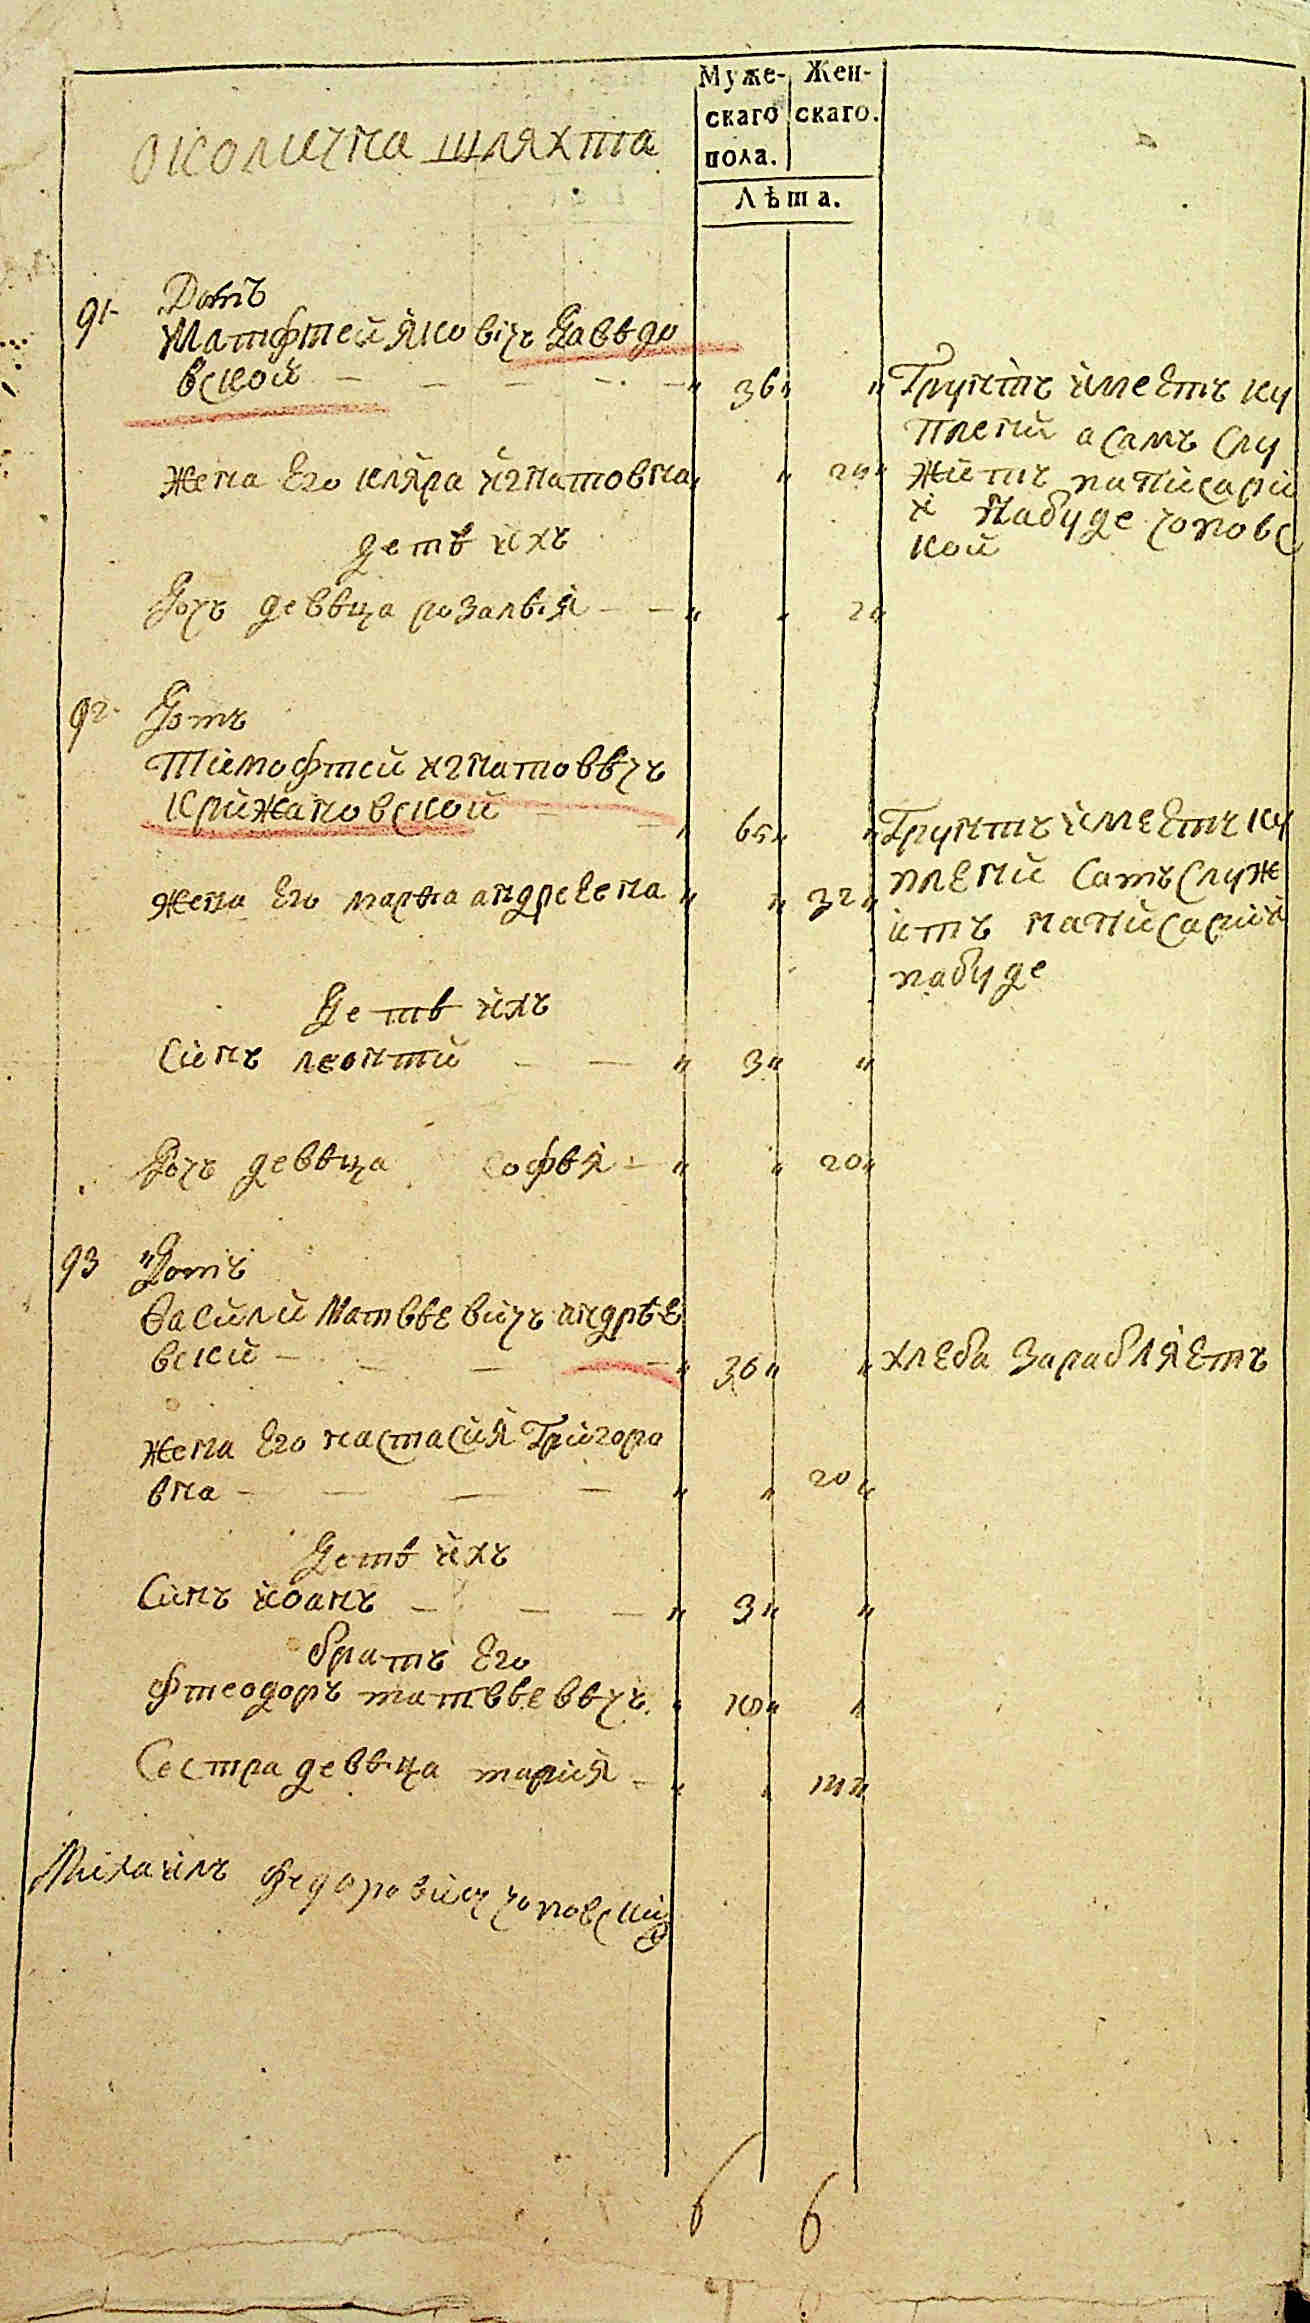 околична шляхта
Муже- Жен-
скаго скаго.
пола.
Лѣта.
91. Домъ
Матфтей Яковічъ Давидо
вской — — — — " 36 " "
Грунтъ имеетъ ку
плений а самъ слу
житъ на писари
и
кой
Жена Его кляра ігнатовна " "
детѣ ихъ
Дочъ девѣца розалвія — — " " 2 "
92. Домъ
Тимофтей игнатоввчъ
крижановской — — " 65 " "
Грунтъ имеетъ ку
плений Самъ служ
итъ на писарий
набуде
Жена Его марѳа андреевна " " 32 "
Детѣ ихъ
Синъ леонтий — — " 3 " "
Дочъ девѣца софвія — " " 20 "
93 "Домъ
Василий Матвѣевичъ андрѣе
вский — — — — " 36 " "
хлеба зарабляетъ
Жена Его настасия Григоро
вна — — — — " " 20 "
Детѣ ихъ
Синъ иоанъ — — — " 3 " "
братъ Его
Фтеодоръ матвѣеввчъ " "
Сестра девѣца мария — " "
Михаилъ Федоровичъ
6 6